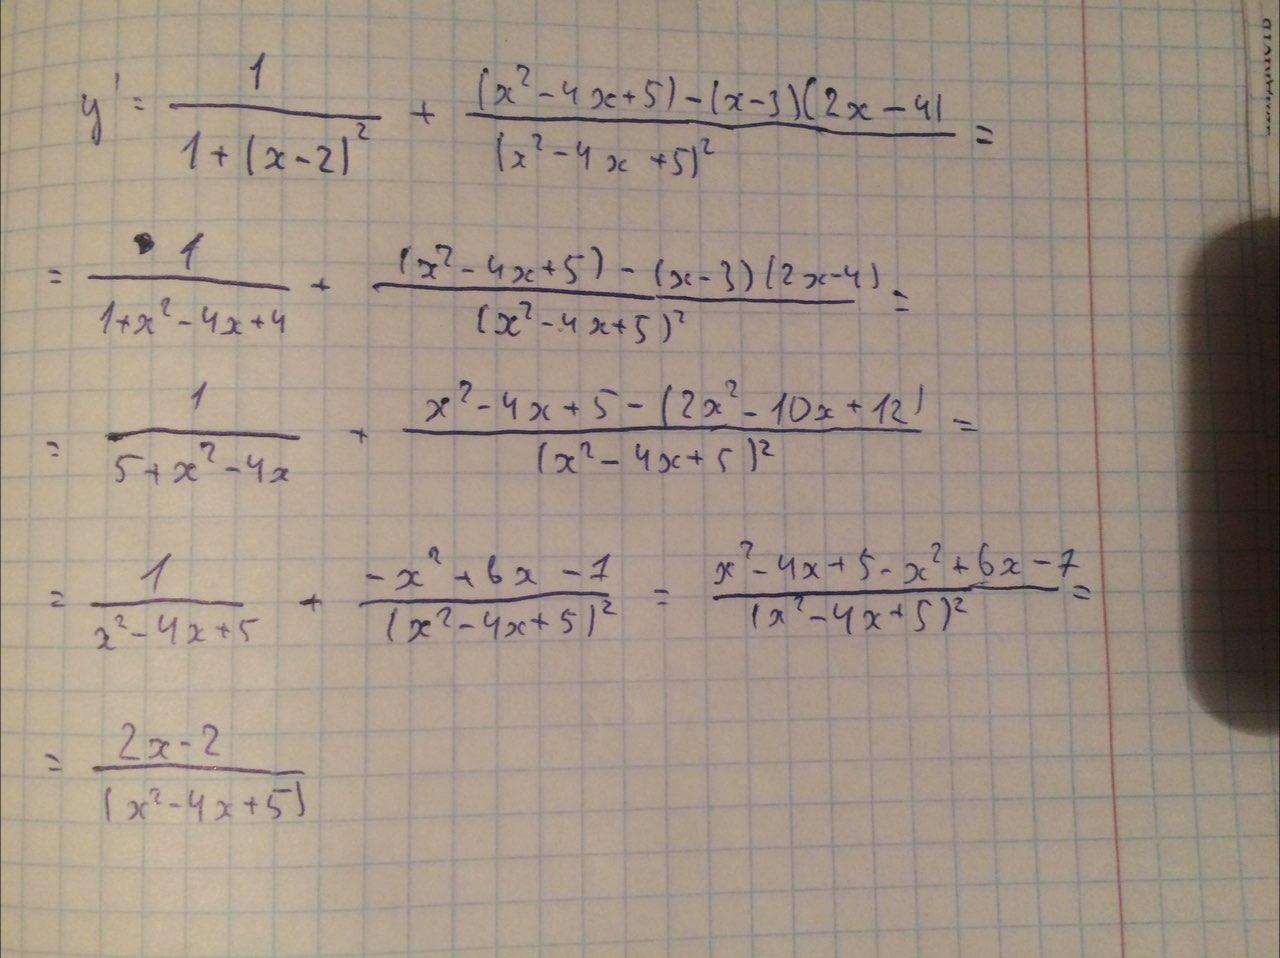 y' = 1/(1+(x-2)²) + ((x²-4x+5)-(x-3)(2x-4))/(x²-4x+5)² =
= 1/(1+x²-4x+4) + ((x²-4x+5)-(x-3)(2x-4))/(x²-4x+5)² =
= 1/(5+x²-4x) + (x²-4x+5-(2x²-10x+12))/(x²-4x+5)² =
= 1/(x²-4x+5) + (-x²+6x-7)/(x²-4x+5)² = (x²-4x+5-x²+6x-7)/(x²-4x+5)² =
= (2x-2)/(x²-4x+5)